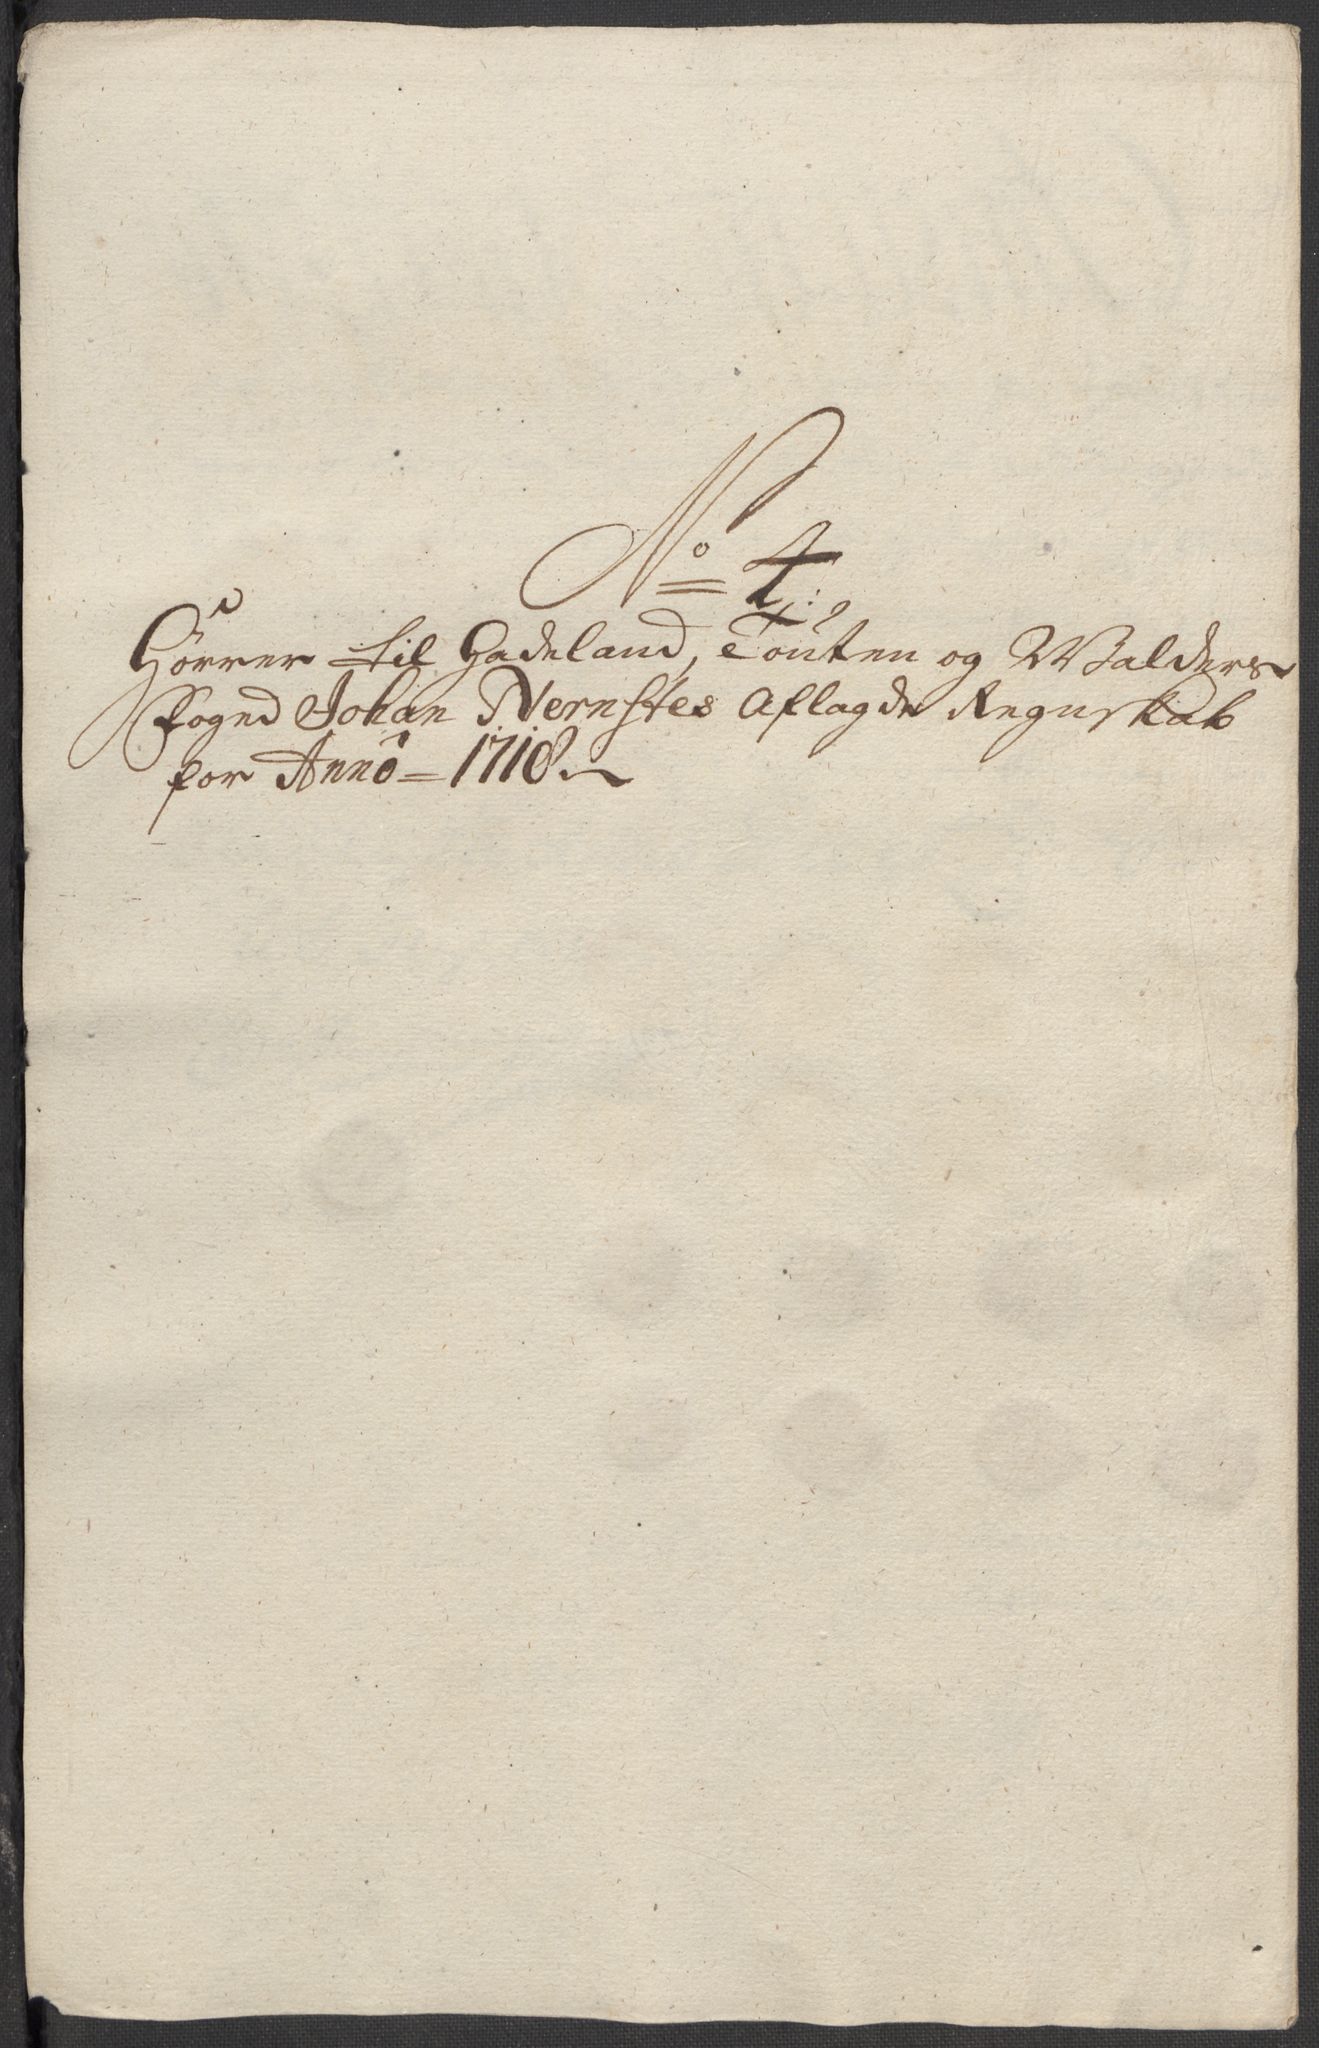 No 4:
Hörrer til Hadeland, Touten og Walders
Foged Johan Nernstes Aflagde Reguskab
for Anno 1718